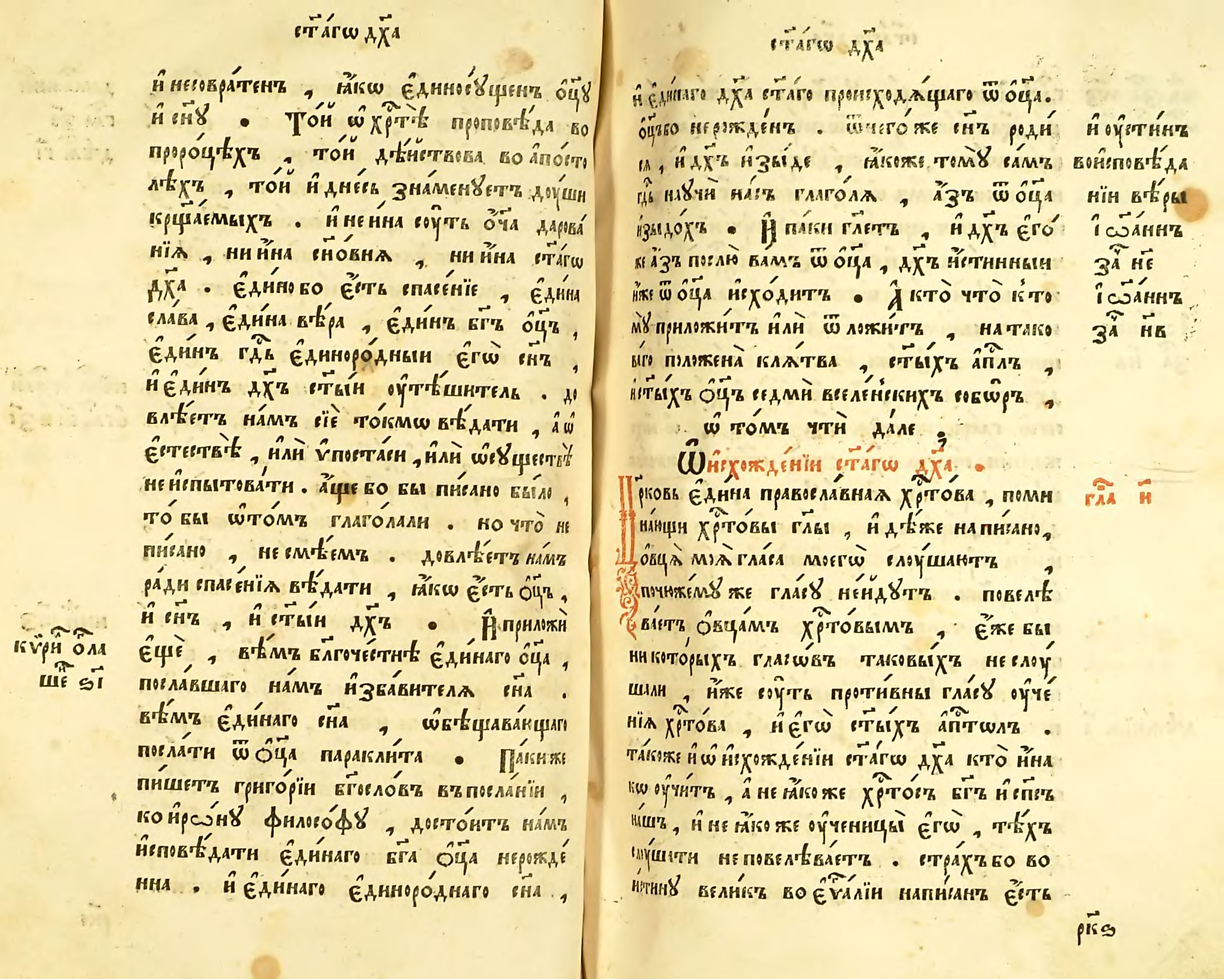 ст҃а́гѡ дх҃а
и҆ несовра́тенъ , ꙗ҆́кѡ є҆диносꙋ́щенъ ѻ҆ц҃ꙋ
и҆ сн҃ꙋ . То́й ѡ҆ хрⷭ҇тѣ̀ проповѣ́да во
проро́цѣхъ , то́й дѣ́йствова во а҆по́сто
лѣхъ , то́й и҆ дне́сь зна́менꙋетъ дꙋ́ши
крща́емыхъ . и҆ не и҆на сꙋ́ть ѻ҆́ча дарова́
нїѧ , ни и҆́на сн҃о́внѧ , ни и҆́на ст҃а́гѡ
дх҃а . є҆ди́но бо є҆́сть спасе́нїе , є҆ди́на
сла́ва , є҆ди́на вѣ́ра , є҆ди́нъ бг҃ъ ѻ҆ц҃ъ ,
є҆ди́нъ гдⷭ҇ь є҆диноро́дныи є҆гѡ̀ сн҃ъ ,
и҆ є҆ди́нъ дх҃ъ ст҃ы́и ᲂу҆тѣ́шитель . до
влѣ́етъ на́мъ сїѐ то́кмѡ вѣ́дати , а҆ ѡ҆
є҆стествѣ̀ , и҆лѝ ѵ҆поста́си , и҆лѝ ѡ҆сꙋществѣ̀
не и҆спытова́ти . а҆́ще бо бы пи́сано бы́ло ,
то́ бы ѡ҆то́мъ глаго́лали . но что̀ не
пи́сано , не смѣ́ем . довлѣ́етъ на́мъ
ра́ди спасе́нїѧ вѣ́дати , ꙗ҆́кѡ є҆́сть ѻ҆ц҃ъ ,
и҆ сн҃ъ , и҆ ст҃ы́и дх҃ъ . И҆ приложѝ
є҆щѐ , вѣ́мъ бл҃гоче́стнѣ є҆ди́наго ѻ҆ц҃а ,
посла́вшаго на́мъ и҆зба́вителѧ сн҃а .
вѣ́мъ є҆ди́наго сн҃а , ѡ҆бѣщава́ющаго
посла́ти ѿ ѻ҆ц҃а паракли́та . Па́ки же
пи́шетъ григо́рїи бг҃осло́въ въ посла́нїи ,
ко и҆рѡ́нꙋ филосо́фꙋ , досто́итъ на́мъ
и҆сповѣ́дати є҆ди́наго бг҃а ѻ҆ц҃а нерожде́
нна . и҆ є҆ди́наго є҆диноро́днаго сн҃а ,
кѵ́ри ѻ҆гла
ше ѕ҃і
ст҃а́гѡ дх҃а
и҆ є҆ди́наго дх҃а ст҃а́го происходѧ́щаго ѿ ѻ҆ц҃а .
ѻ҆ц҃ъ бо нерожде́нъ . ѿ него́ же сн҃ъ роди́
сѧ , и҆ дх҃ъ и҆зы́де , ꙗ҆́коже томꙋ̀ са́мъ
гдⷭ҇ь наꙋчѝ на́съ глаго́лѧ , а҆́зъ ѿ ѻ҆ц҃а
и҆зыдо́хъ . И҆ па́ки гл҃етъ , и҆ дх҃ъ є҆го́
же а҆́зъ послю̀ ва́мъ ѿ ѻ҆ц҃а , дх҃ъ и҆́стинныи
и҆́же ѿ ѻ҆ц҃а и҆схо́дитъ . А҆ кто̀ что̀ к то
мꙋ̀ приложи́тъ и҆лѝ ѿложи́тъ , на тако
ва́го положена̀ клѧ́тва , ст҃ы́хъ а҆пⷭ҇лъ ,
и҆ ст҃ы́хъ ѻ҆ц҃ъ седмѝ вселе́нскихъ собѡ́ръ ,
ѡ҆ то́мъ чтѝ да́ле .
Ѡ҆ и҆схожде́нїи ст҃а́гѡ дх҃а .
Цр҃ковь є҆ди́на правосла́внаѧ хрⷭ҇то́ва , поми
на́ющи хрⷭ҇то́вы гл҃ы , и҆дѣ́же напи́сано ,
ѻ҆́вцѧ моѧ̀ гла́са моегѡ̀ слꙋ́шаютъ ,
по чюже́мꙋ же гла́сꙋ не и҆́дꙋтъ . повелѣ
ва́етъ ѻ҆вца́мъ хрⷭ҇то́вымъ , є҆́же бы
ни кото́рыхъ гласѡ́въ таковы́хъ не слꙋ́
шали , и҆́же сꙋ́ть проти́вны гла́сꙋ ᲂу҆че́
нїѧ хрⷭ҇то́ва , и҆ є҆гѡ̀ ст҃ы́хъ а҆пⷭ҇толъ .
та́коже и҆ ѡ҆ и҆схожде́нїи ст҃а́гѡ дх҃а кто̀ и҆́на
кѡ ᲂу҆чи́тъ , а҆ не ꙗ҆́коже хрⷭ҇то́съ бг҃ъ и҆ сп҃съ
на́шъ , и҆ не ꙗ҆́коже ᲂу҆ченицы̀ є҆гѡ̀ , тѣ́хъ
слꙋ́шати не повелѣва́етъ . стра́хъ бо во
и҆́стинꙋ вели́къ во є҆ѵⷢ҇а́лїи напи́сан є҆́сть
и҆ᲂу҆сти́нъ
во и҆сповѣ́да
нїи вѣ́ры
і҆ѡа́ннъ
за҃ н҃е
і҆ѡа́ннъ
за҃ н҃в
гла҃ и҃
рк҃ѕ